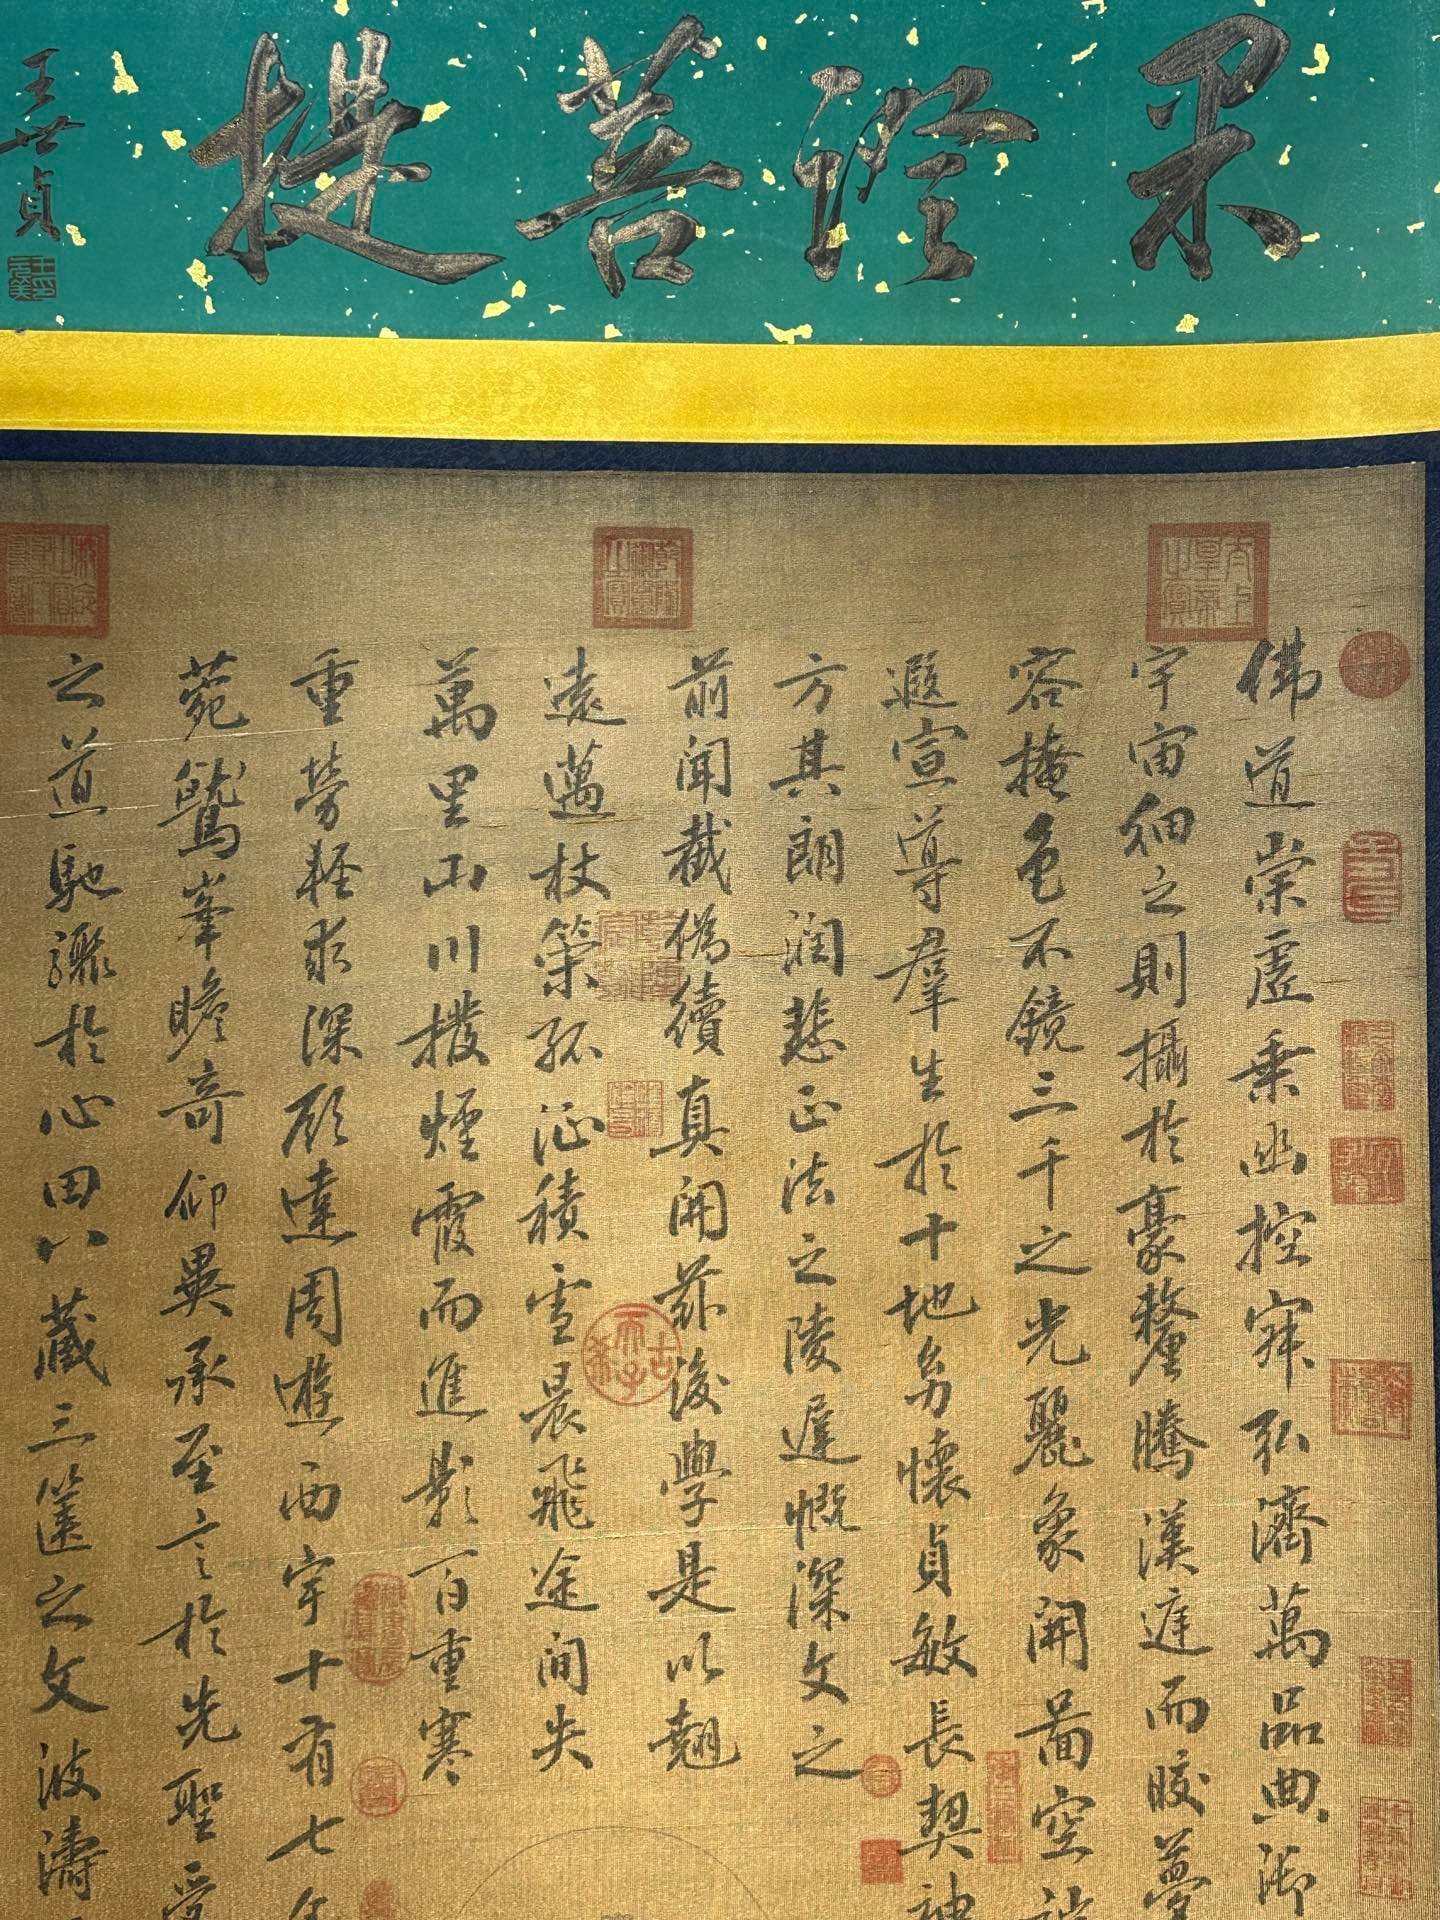 果證菩提
王世貞
太上皇帝之寶
乾隆御覽之寶
佛道崇虛乘幽控寂弘濟萬品典御
宇宙細之則攝於豪釐騰漢庭而皎夢
容掩色不鏡三千之光麗象開圖空端
遐宣導羣生於十地幼懷貞敏長契神
方其朗潤悲正法之陵遲慨深文之
前聞截偽續真開茲後學是以翹
遠邁杖策孤征積雪晨飛途間失
萬里山川撥煙霞而進影百重寒
重勞輕求深願達周遊西宇十有七年
菀鷲峯瞻奇仰異承至言於先聖受
之道馳驟於心田八藏三篋之文波濤
古希天子